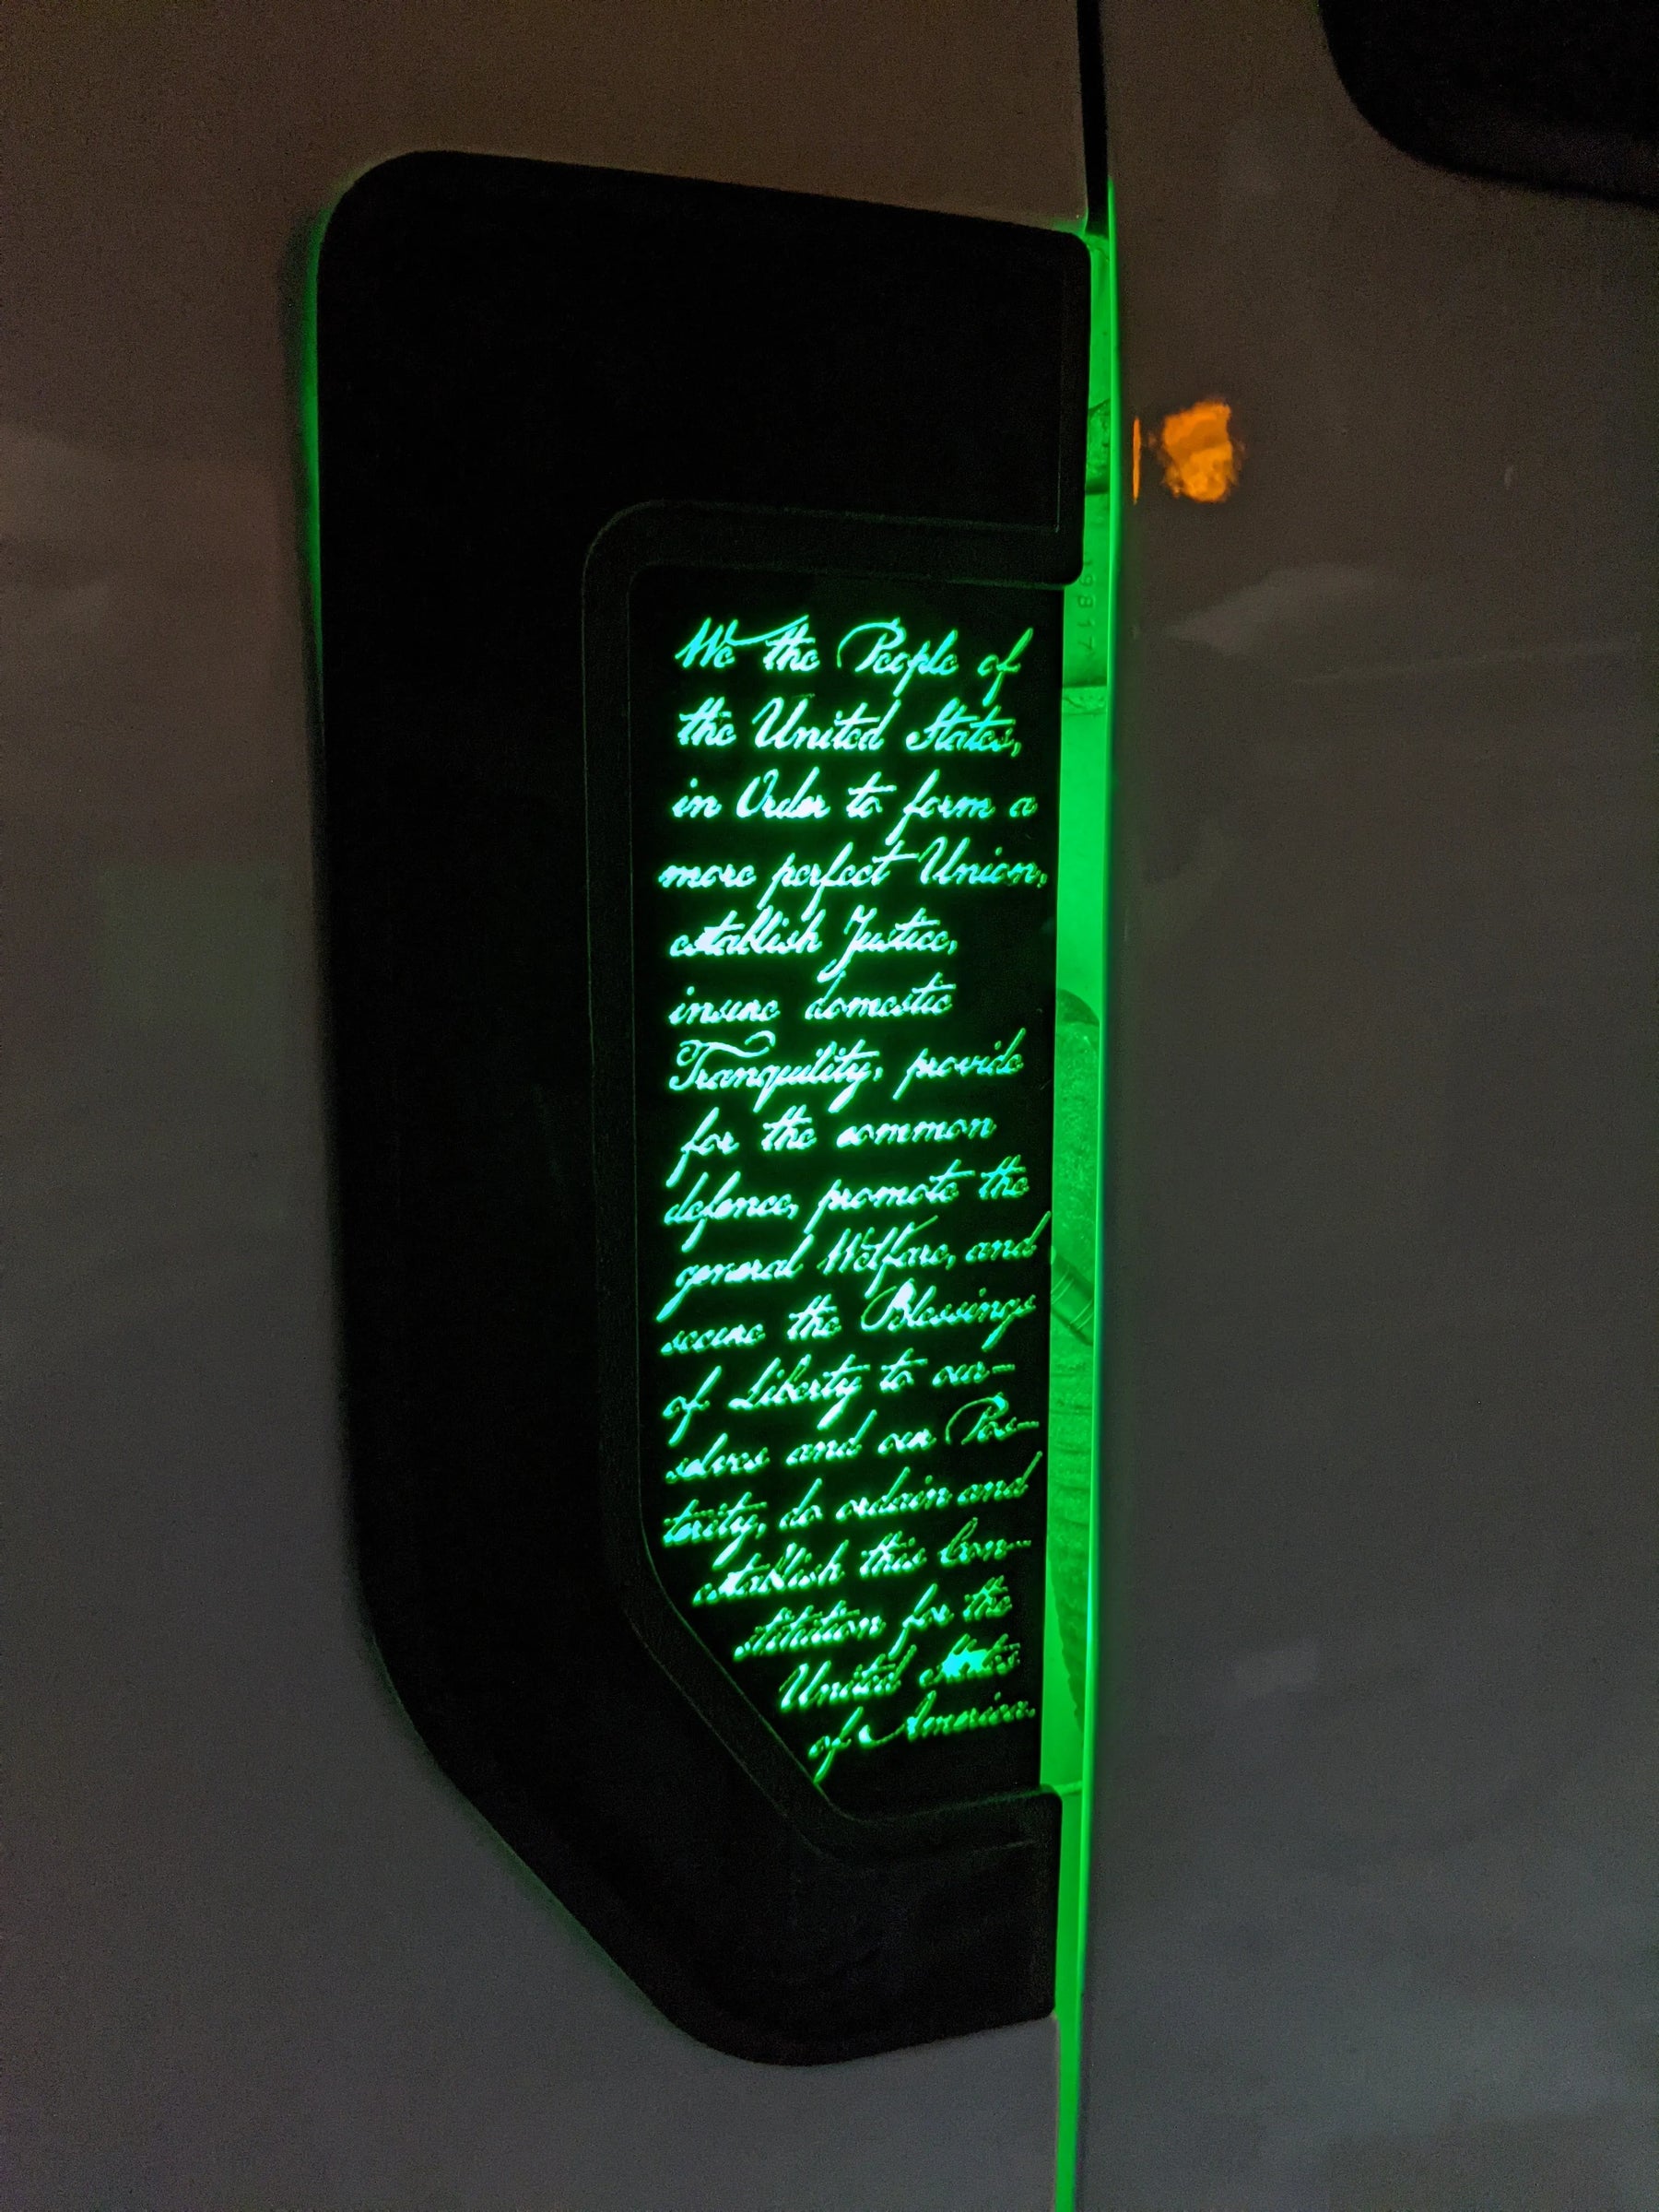 We the People of
the United States,
in Order to form a
more perfect Union,
establish Justice,
insure domestic
Tranquility, provide
for the common
defence, promote the
general Welfare, and
secure the Blessings
of Liberty to our-
selves and our Pos-
terity, do ordain and
establish this Con-
stitution for the
United States
of America.
9817